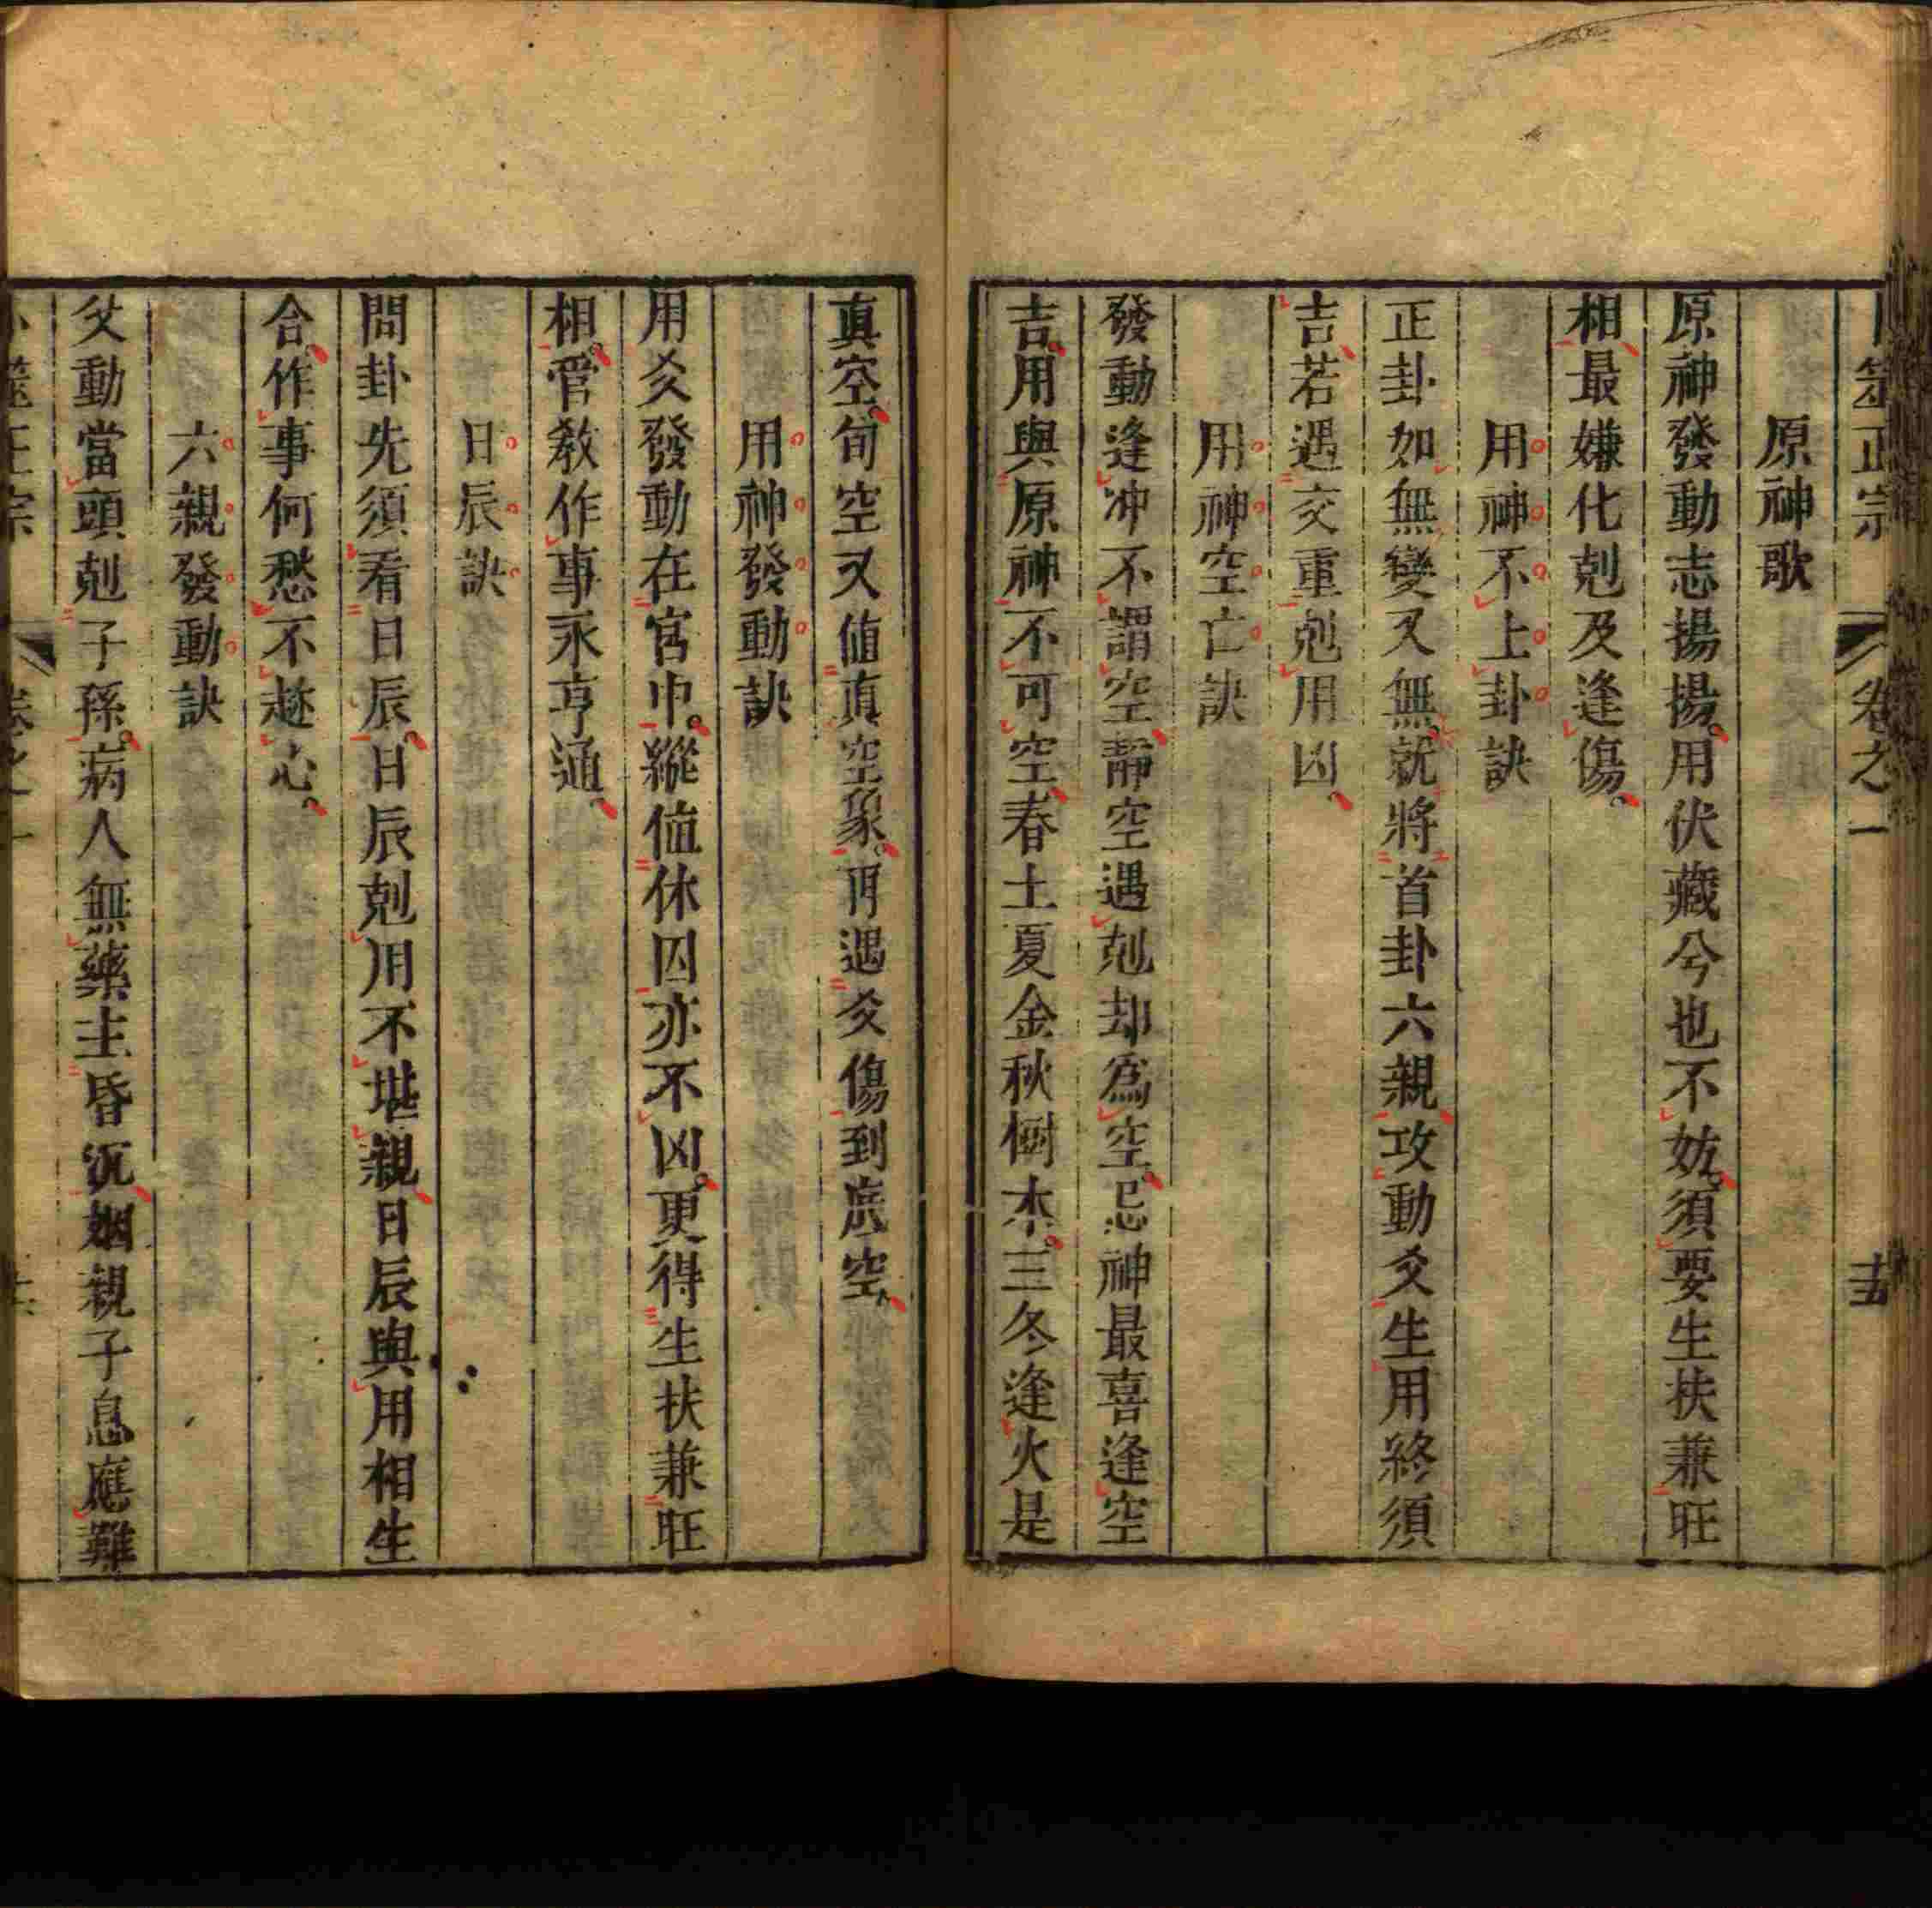 卜筮正宗 卷之一 十五
原神歌
原神發動志揚揚。用伏藏兮也不妨。須要生扶兼旺
相、最嫌化剋及逢傷。
用神不上卦訣
正卦如無變又無。就將首卦六親攻、動爻生用終須
吉、若遇交重剋用凶。
用神空亡訣
發動逢冲不謂空、靜空遇剋却爲空。忌神最喜逢空
吉。用與原神不可空、春土夏金秋樹木。三冬逢火是
真空。旬空又値真空象。再遇爻傷到底空。
用神發動訣
用爻發動在宮中。縱値休囚亦不凶。更得生扶兼旺
相。管教作事永亨通。
日辰訣
問卦先須看日辰。日辰剋用不堪親、日辰與用相生
合。作事何愁不趂心。
六親發動訣
父動當頭剋子孫。病人無藥主昏沉、姻親子息應難
卜筮正宗 卷之一